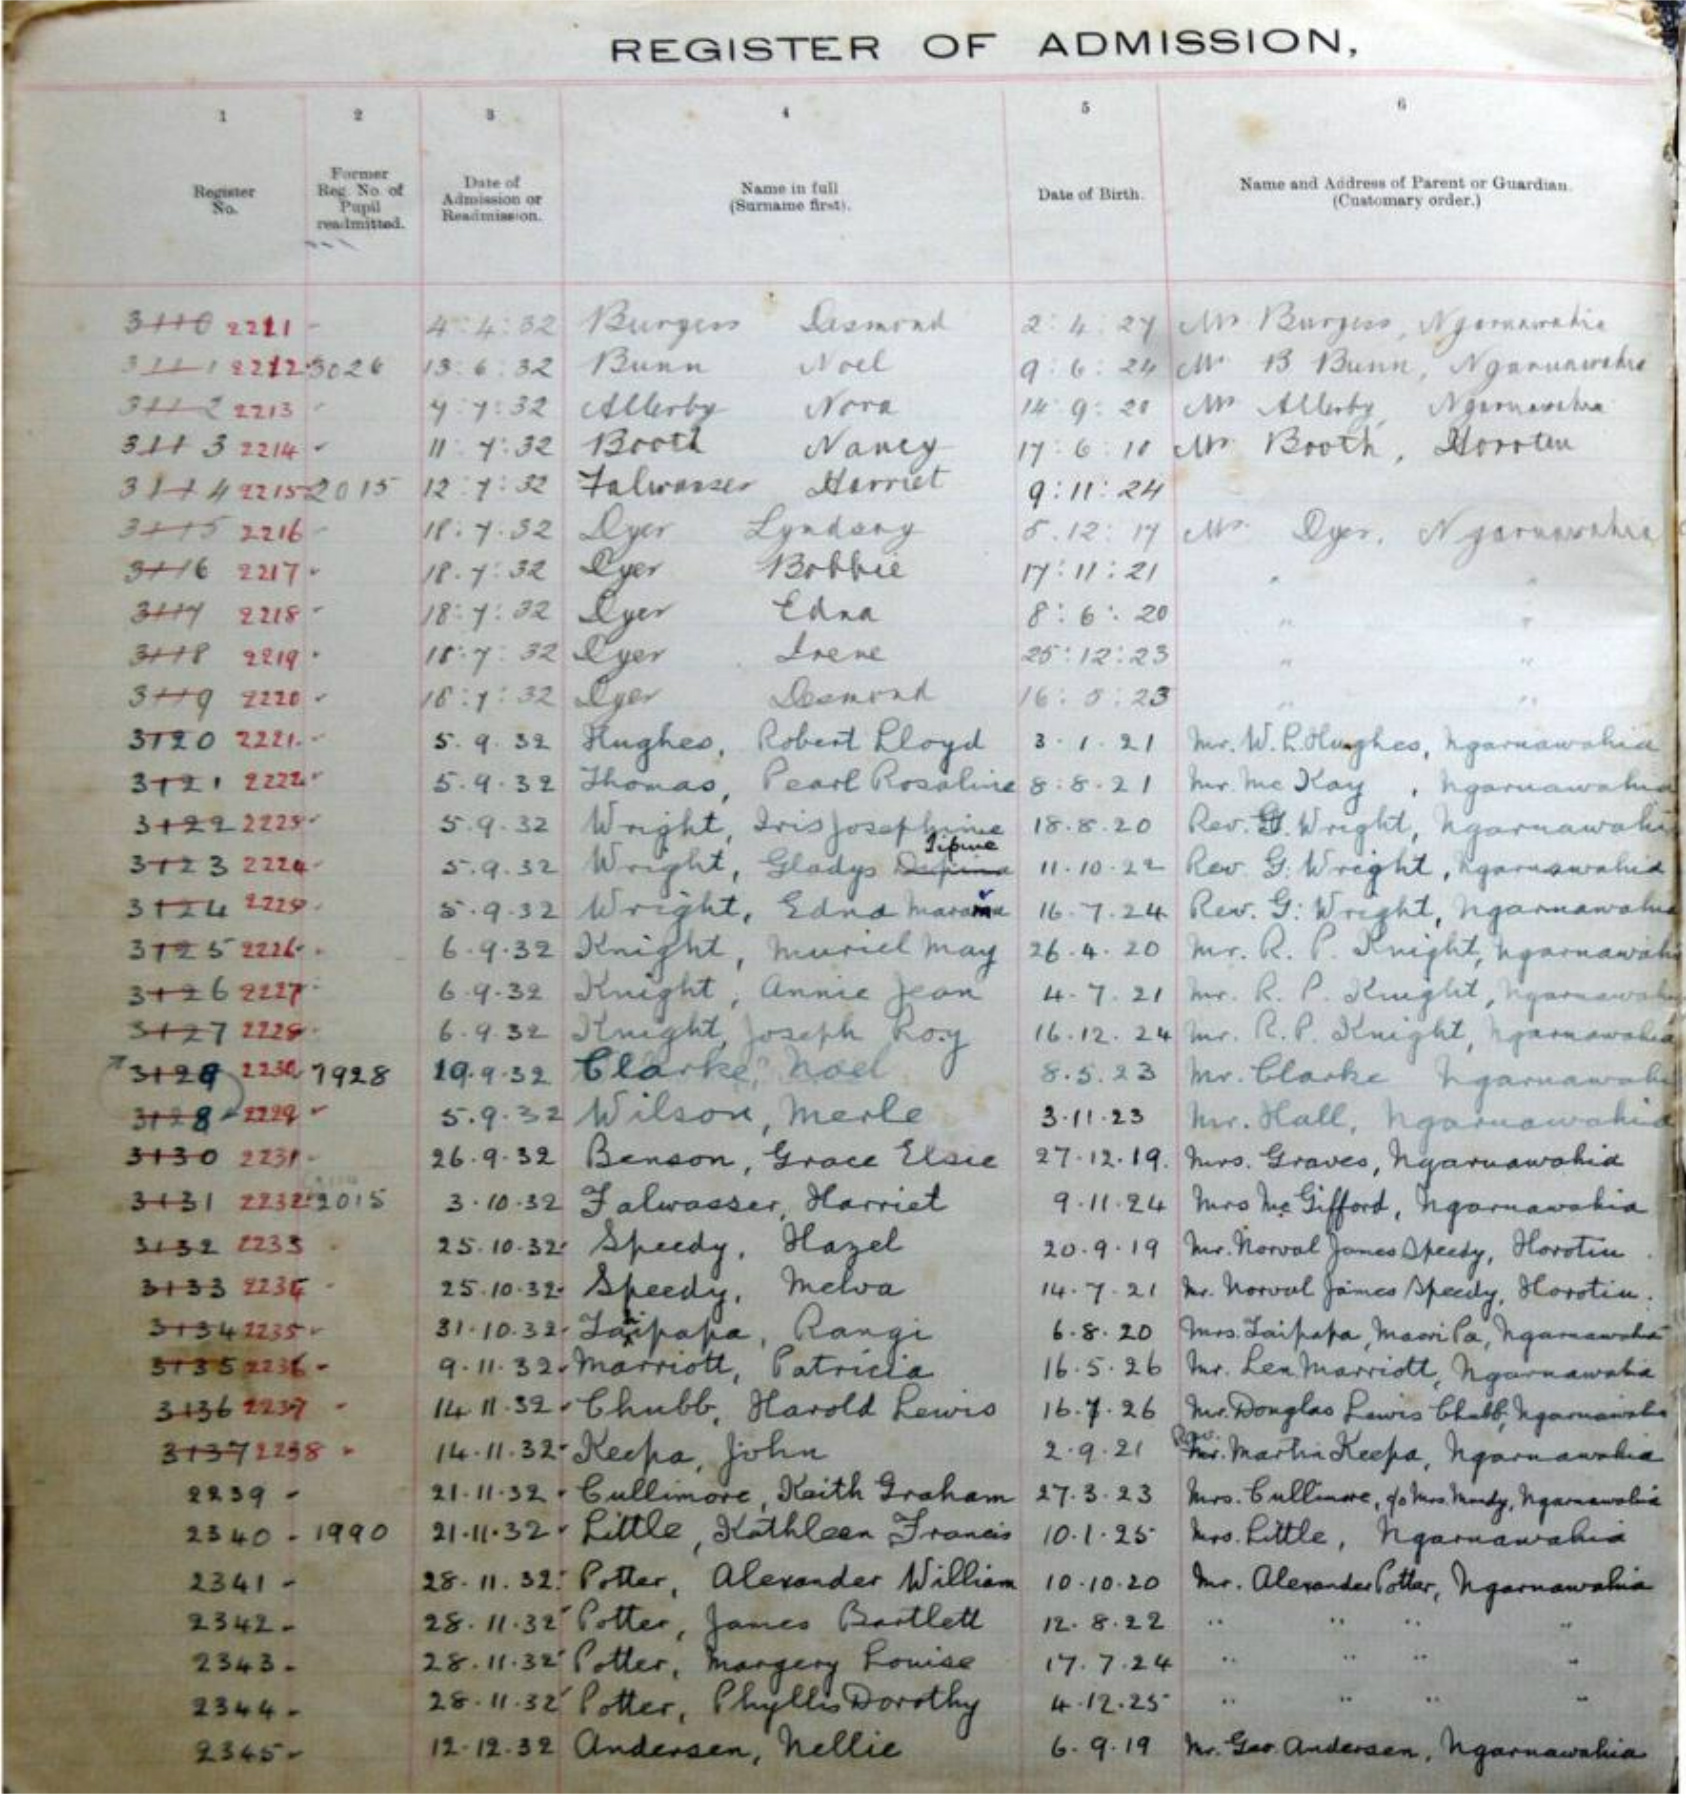 REGISTER OF ADMISSION,
1 2 3 4 5 6
Register No. Former Reg. No. of Pupil readmitted. Date of Admission or Readmission. Name in full (Surname first). Date of Birth. Name and Address of Parent or Guardian. (Customary order.)
3110 2211 - 4:4:32 Burgess Desmond 2:4:27 Mr Burgess, Ngaruawahia
3111 2212 3026 13:6:32 Bunn Noel 9:6:24 Mr B Bunn, Ngaruawahia
3112 2213 - 4:7:32 Allerby Nora 14:9:20 Mr Allerby, Ngaruawahia
3113 2214 - 11:7:32 Booth Nancy 17:6:18 Mr Booth, Horotiu
3114 2215 2015 12:7:32 Falwasser Harriet 9:11:24
3115 2216 - 18:7:32 Dyer Lyndsay 5.12:17 Mr Dyer, Ngaruawahia
3116 2217 - 18.7:32 Dyer Bobbie 17:11:21 " "
3117 2218 - 18:7:32 Dyer Edna 8:6:20 " "
3118 2219 - 18:7:32 Dyer Irene 25:12:23 " "
3119 2220 - 18:7:32 Dyer Desmond 16:5:23 " "
3120 2221 - 5.9.32 Hughes, Robert Lloyd 3.1.21 Mr. W. L. Hughes, Ngaruawahia
3121 2222 - 5.9.32 Thomas, Pearl Rosaline 8.8.21 Mr. Mc Kay, Ngaruawahia
3122 2223 - 5.9.32 Wright, Iris Josephine 18.8.20 Rev. G. Wright, Ngaruawahia
Tipine
3123 2224 - 5.9.32 Wright, Gladys 11.10.22 Rev. G. Wright, Ngaruawahia
3124 2225 - 5.9.32 Wright, Edna 16.7.24 Rev. G. Wright, Ngaruawahia
3125 2226 - 6.9.32 Knight, Muriel May 26.4.20 Mr. R. P. Knight, Ngaruawahia
3126 2227 - 6.9.32 Knight, Annie Jean 4.7.21 Mr. R. P. Knight, Ngaruawahia
3127 2228 - 6.9.32 Knight, Joseph Roy 16.12.24 Mr. R. P. Knight, Ngaruawahia
3129 2230 1928 19.9.32 Clarke, Noel 8.5.23 Mr. Clarke Ngaruawahia
3128 2229 - 5.9.32 Wilson, Merle 3.11.23 Mr. Hall, Ngaruawahia
3130 2231 - 26.9.32 Benson, Grace Elsie 27.12.19. Mrs. Graves, Ngaruawahia
3131 2232 2015 3.10.32 Falwasser, Harriet 9.11.24 Mrs Mc Gifford, Ngaruawahia
3132 2233 - 25.10.32 Speedy, Hazel 20.9.19 Mr. Norval James Speedy, Horotiu.
3133 2234 - 25.10.32 Speedy, Melva 14.7.21 Mr. Norval James Speedy, Horotiu.
3134 2235 - 31.10.32 Taipapa, Rangi 6.8.20 Mrs. Taipapa, Maori Pa, Ngaruawahia
3135 2236 - 9.11.32 Marriott, Patricia 16.5.26 Mr. Len Marriott, Ngaruawahia
3136 2237 - 14.11.32 Chubb, Harold Lewis 16.7.26 Mr. Douglas Lewis Chubb, Ngaruawahia
3137 2238 - 14.11.32 Keepa, John 2.9.21 Rev. Mr. Martin Keepa, Ngaruawahia
2239 - 21.11.32 Cullimore, Keith Graham 27.3.23 Mrs. Cullimore, c/o Mrs. Moody, Ngaruawahia
2340 - 1990 21.11.32 Little, Kathleen Francis 10.1.25 Mrs. Little, Ngaruawahia
2341 - 28.11.32 Potter, Alexander William 10.10.20 Mr. Alexander Potter, Ngaruawahia
2342 - 28.11.32 Potter, James Bartlett 12.8.22 " " " "
2343 - 28.11.32 Potter, Margery Louise 17.7.24 " " " "
2344 - 28.11.32 Potter, Phyllis Dorothy 4.12.25 " " " "
2345 - 12.12.32 Andersen, Nellie 6.9.19 Mr. Geo. Andersen, Ngaruawahia